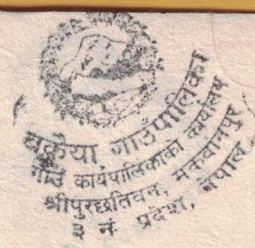 बकैया गाउँपालिका
गाउँ कार्यपालिकाको कार्यालय
श्रीपुरछतिवन, मकवानपुर
३ नं. प्रदेश, नेपाल